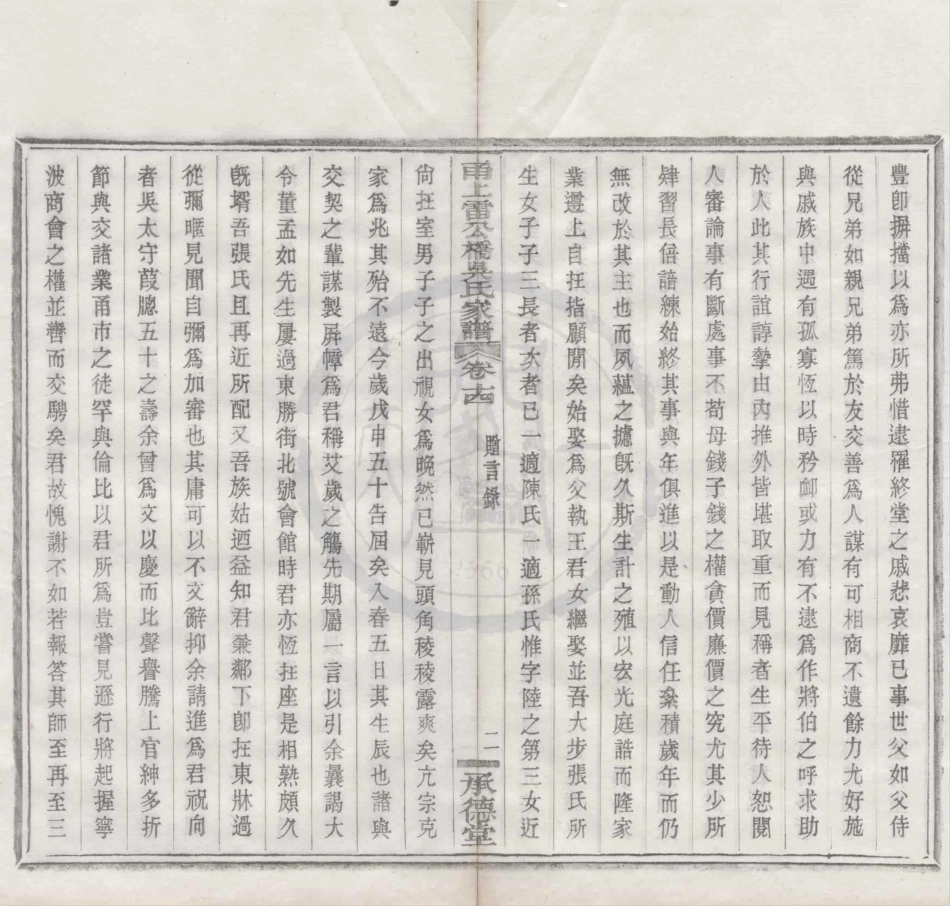 豐卽摒擋以爲亦所弗惜逮罹終堂之戚悲哀靡已事世父如父侍
從兄弟如親兄弟篤於友交善爲人謀有可相商不遺餘力尤好施
與戚族中遇有孤寡恆以時矜卹或力有不逮爲作將伯之呼求助
於人此其行誼諄摯由內推外皆堪取重而見稱者生平待人恕閱
人審論事有斷處事不苟母錢子錢之權貪價廉價之究尤其少所
肄習長倍諳練始終其事與年俱進以是動人信任枀積歲年而仍
無改於其主也而夙蘊之攄旣久斯生計之殖以宏光庭誥而隆家
業遵上自在指顧閒矣始娶爲父執王君女繼娶並吾大步張氏所
生女子子三長者次者已一適陳氏一適孫氏惟字陸之第三女近
甬上雷公橋吳氏家譜 卷十四 贈言錄 二 承德堂
尙在室男子子之出視女爲晚然已嶄見頭角稜稜露爽矣亢宗克
家爲兆其殆不遠今歲戊申五十告屆矣入春五日其生辰也諸與
交契之輩謀製屏幛爲君稱艾歲之觴先期屬一言以引余曩謁大
令董孟如先生屢過東勝街北號會館時君亦恆在座是相熟頗久
旣壻吾張氏且再近所配又吾族姑迺益知君兼鄰下卽在東牀過
從彌暱見聞自彌爲加審也其庸可以不文辭抑余請進爲君祝向
者吳太守葭牕五十之壽余曾爲文以慶而比聲譽騰上官紳多折
節與交諸業甬市之徒罕與倫比以君所爲豈嘗見遜行將起握寧
波商會之權並轡而交騁矣君故愧謝不如若報答其師至再至三